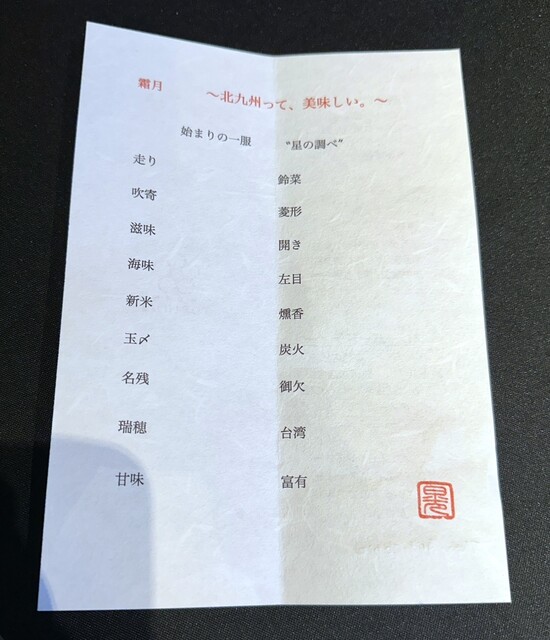 霜月 ～北九州って、美味しい。～
始まりの一服 “星の調べ”
走り 鈴菜
吹寄 菱形
滋味 開き
海味 左目
新米 燻香
玉〆 炭火
名残 御欠
瑞穂 台湾
甘味 富有